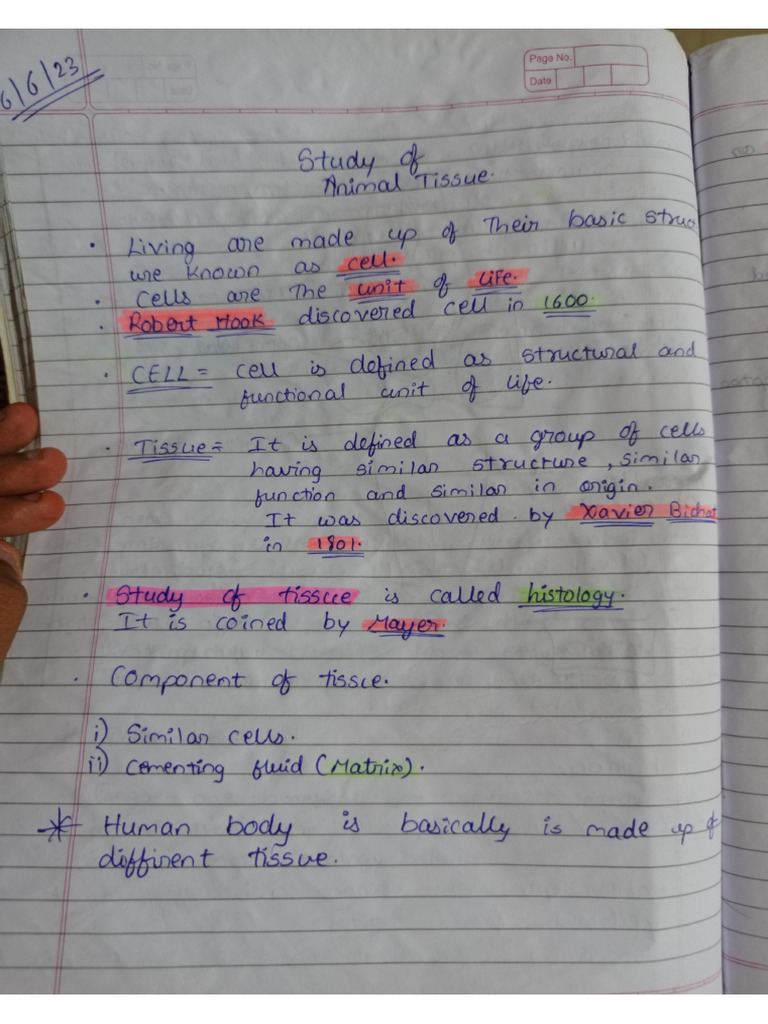 6/6/23
Page No.
Date
Study of
Animal Tissue.
· Living are made up of Their basic struc
ure known as cell.
· cells are the unit of Life.
· Robert Hook discovered cell in 1600.
· CELL = cell is defined as structural and
functional unit of life.
· Tissue = It is defined as a group of cells
having similar structure, similar
function and similar in origin.
It was discovered by Xavier Bichat
in 1801.
· Study of tissue is called histology.
It is coined by Mayer.
· Component of tissue.
i) Similar cells.
ii) cementing fluid (Matrix).
* Human body is basically is made up of
diffirent tissue.